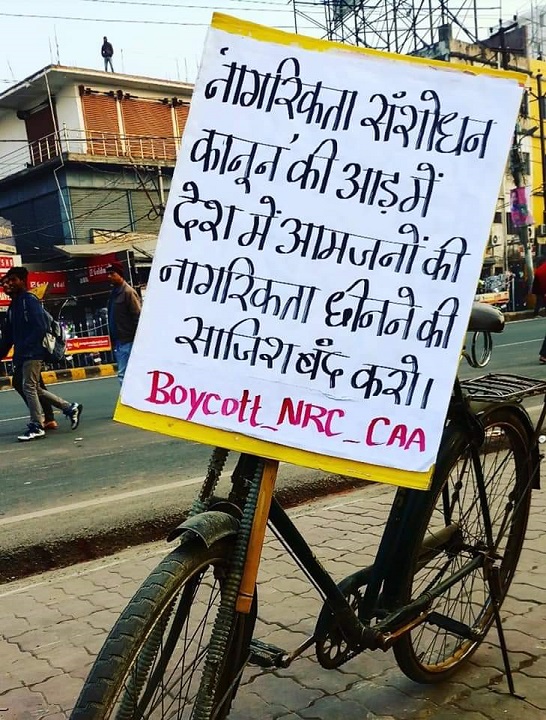 'नागरिकता संशोधन
कानून' की आड़ में
देश में आमजनों की
नागरिकता छीनने की
साजिश बंद करो।
Boycott_NRC_CAA